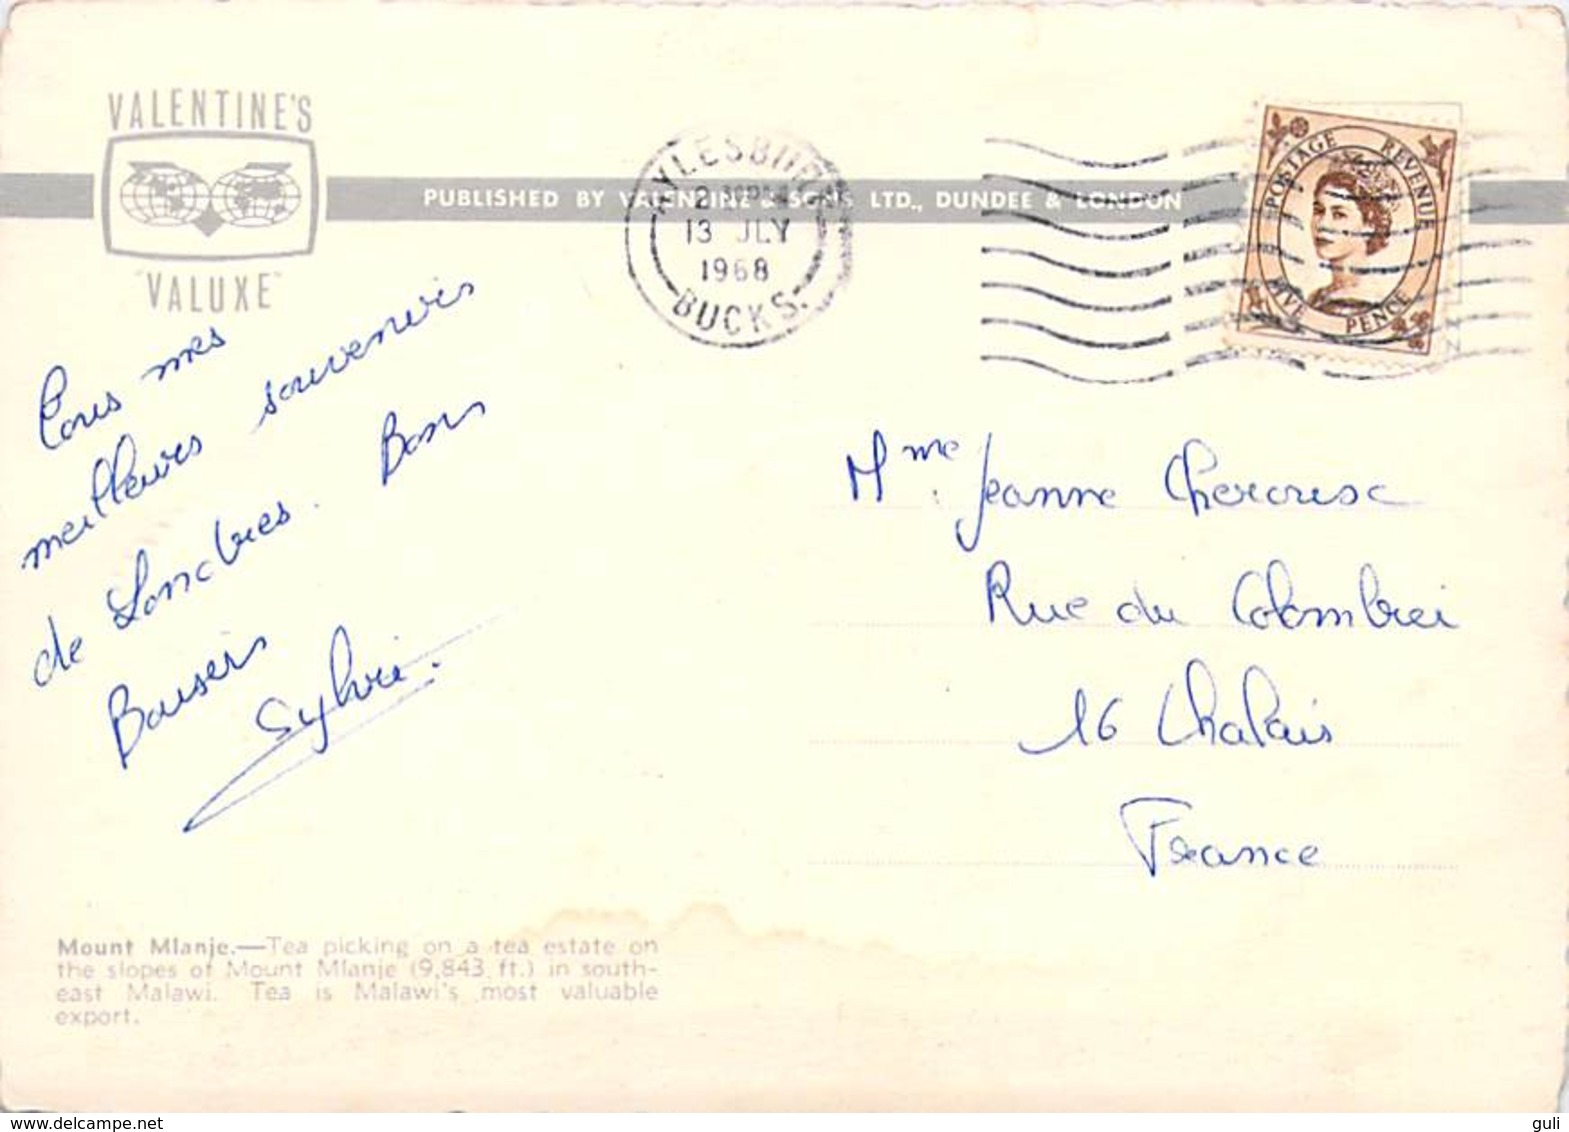 VALENTINE'S
"VALUXE"
PUBLISHED BY VALENTINE & SONS, LTD., DUNDEE & LONDON
AYLESBURY
13 JLY
1968
BUCKS.
POSTAGE REVENUE
FIVE PENCE
Tous mes
meilleurs souvenirs
de Londres. Bons
Baisers
Sylvie.
Mme Jeanne
Rue du Colombier
16 Chalais
France
Mount Mlanje.—Tea picking on a tea estate on
the slopes of Mount Mlanje (9,843 ft.) in south-
east Malawi. Tea is Malawi's most valuable
export.
www.delcampe.net
guli